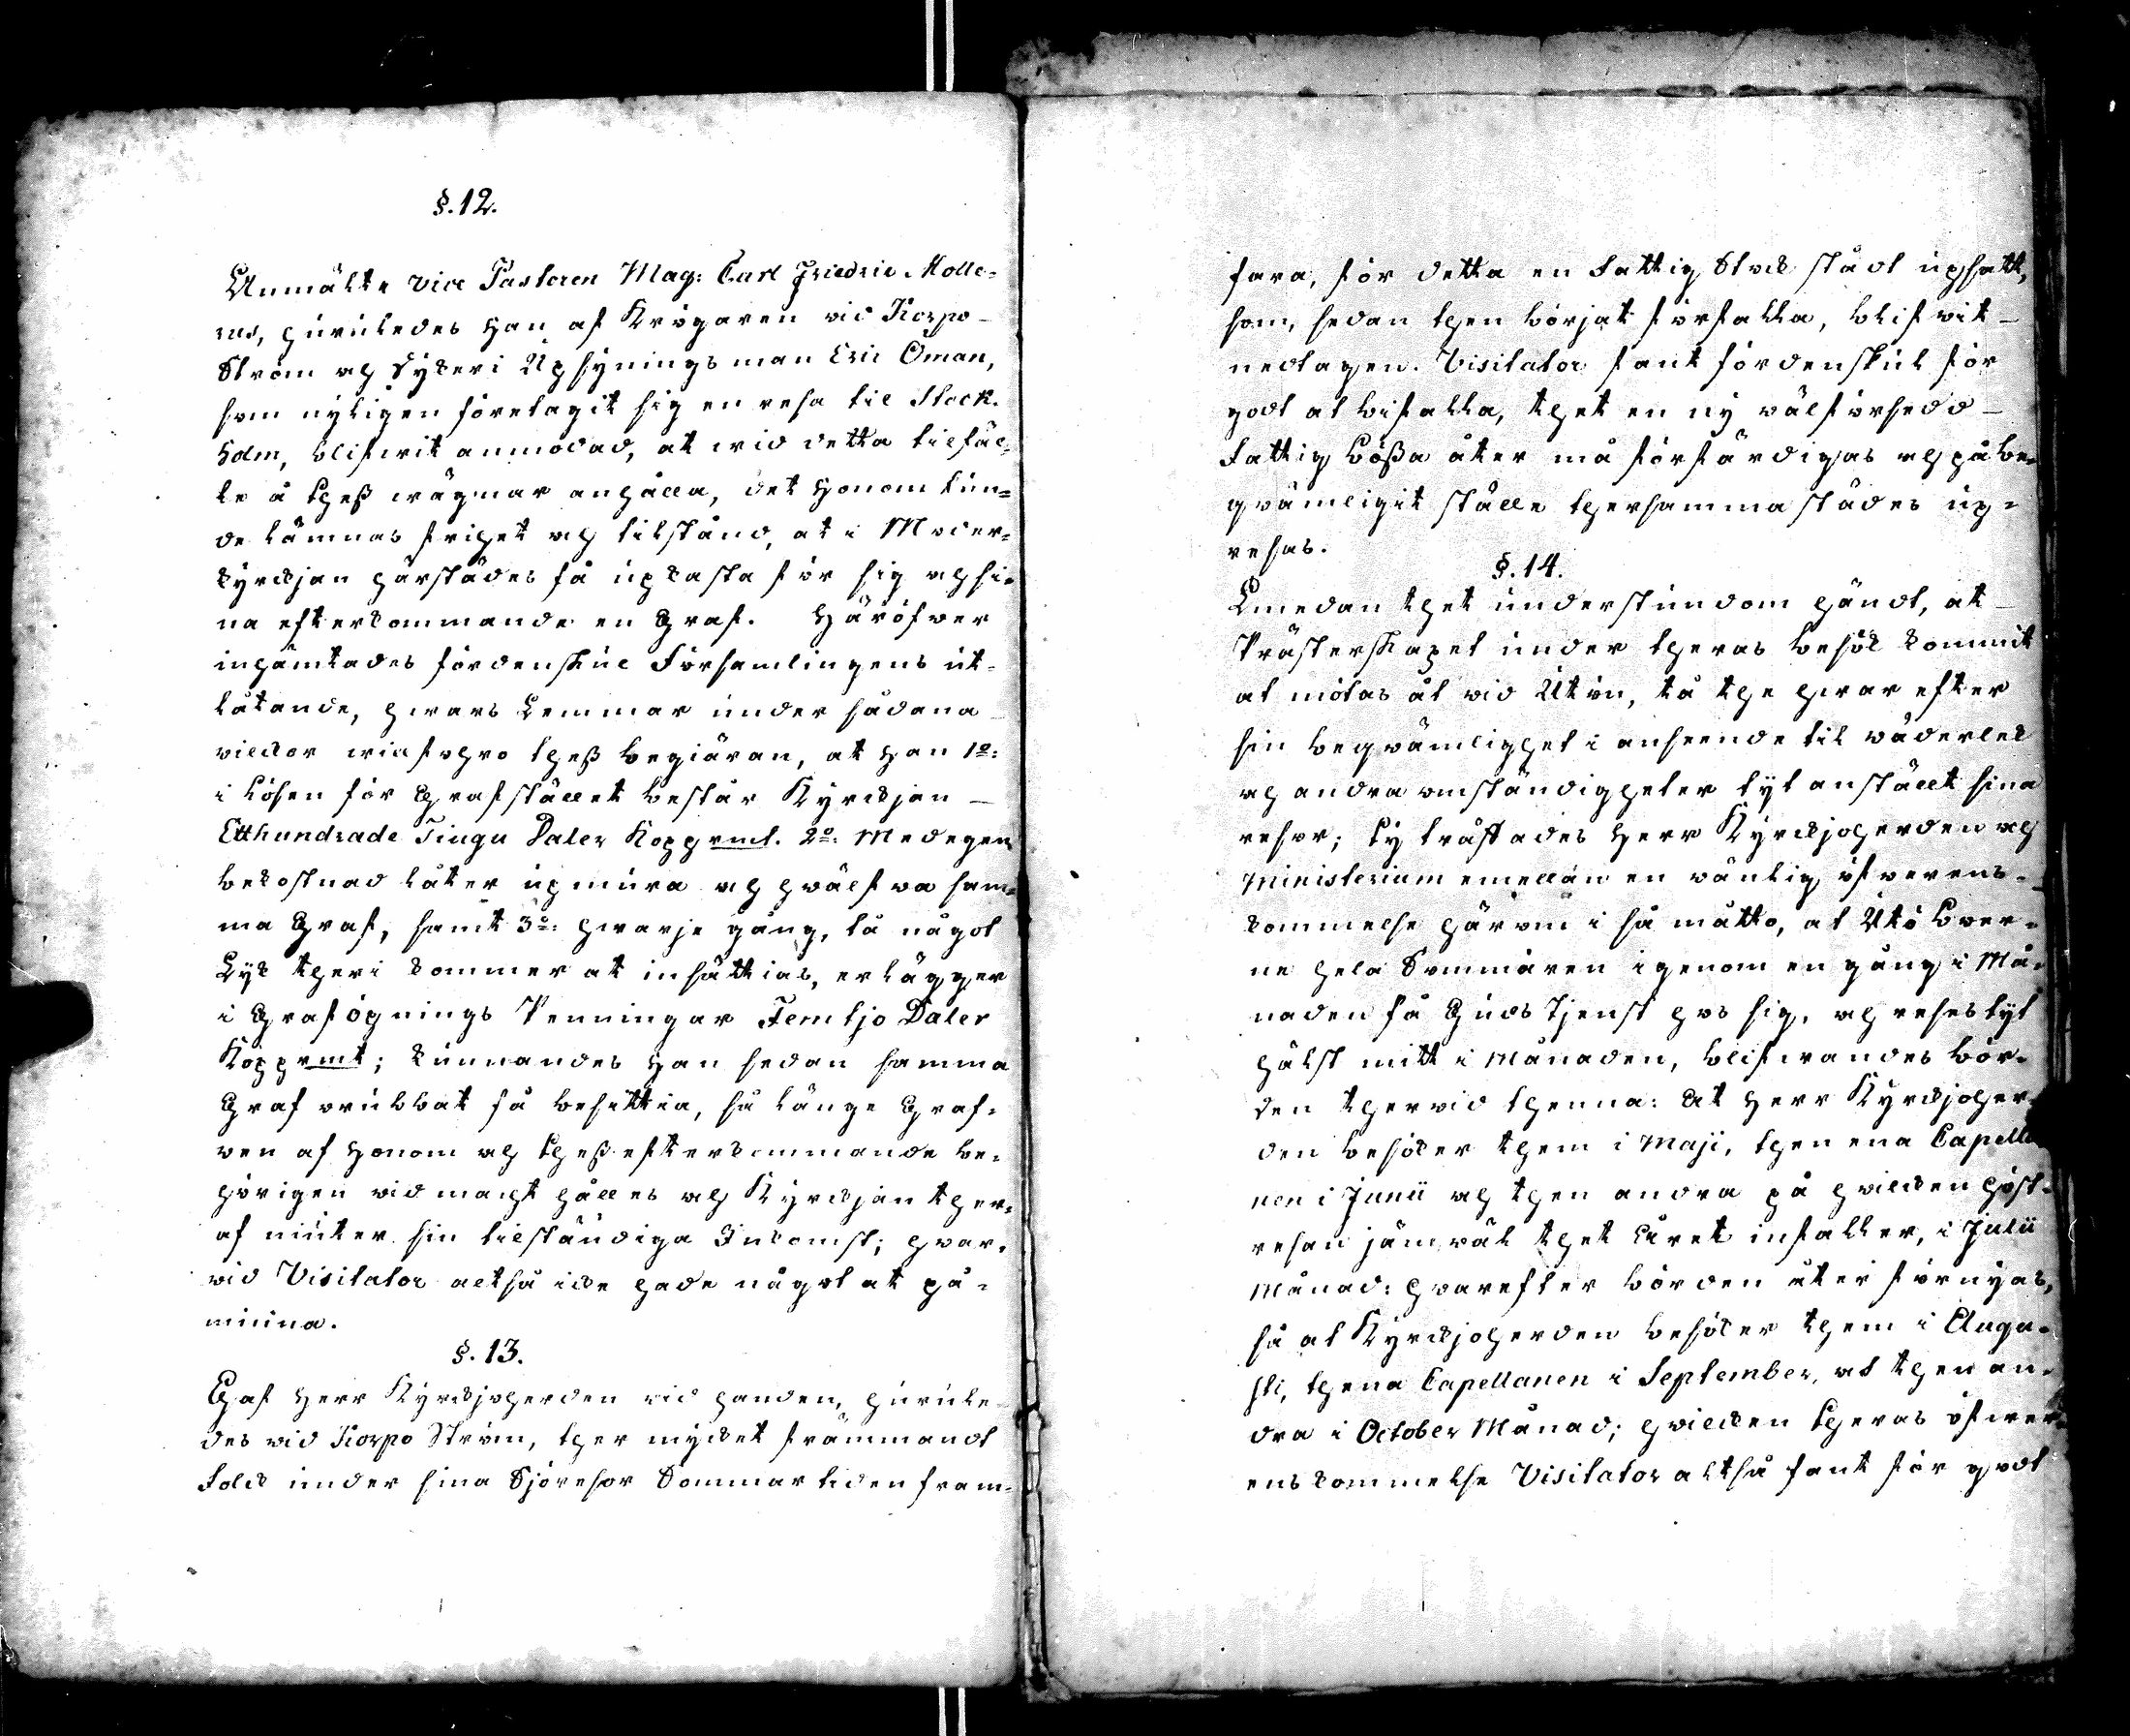 §. 12.
Anmälte vice Pastoren Mag: Carl Friedric Molle=
rus, hurusedes han af Krögaren vid Korpo-
Ström och Fyseri Upsyningsman Eric Öman,
som nyligen företagit sig en resa til Stock.
holm, blifwit anmodad, at wid detta tilfäl=
le å theß wägnar anhålla, det honom kun=
de lämnas frihet och tilstånd, at i Moder=
kyrckjan härstädes få upkasta för sig och si=
na efterkommande en Graf. Häröfwer
inhämtades fördenskul Församlingens ut=
låtande, hwars Lemmar under sådana
vilckor wid theß begiäran, at han 1o:
i Lösen för Grafstället består Kyrckjan -
Etthundrade Tiugu Daler Kopparmt. 2o: Med egen
bekostnad låter upmura och hwälfwa sam=
ma Graf, samt 3o: hwarje gång, tå något
Lijk theri kommer at insättias, erlägger
i Graföpnings Penningar Femtjo Daler
Kopparmt; kunnandes han sedan samma
Graf orubbat få besittia, så länge Graf=
ven af honom och theß efterkommande be=
hörigen vid macht hålles och Kyrckjan ther=
af niuter sin tilständiga Inkomst; hvar=
vid Visitator altså icke hade något at på=
minna.
§. 13.
Gaf Herr Kyrckjoherden vid handen, hurule
des vid Korpo Ström, ther mycket främmandt
Folck under sina Sjöresor Sommartiden fram=
fara, för detta en Fattig Stock stådt upsatt,
som, sedan then börjat förfalla, blifwit -
nedtagen. Visitator fant fördenskul för
godt at bifalla, thet en ny wälförsedd -
Fattig Bößa åter må förfärdigas och på be=
qvämligit ställe thersammastädes up=
resas.
§. 14.
Emedan thet understundom händt, at
Prästerskapet under theras besök kommit
at mötas åt vid Utön, tå the hwar efter
sin beqvämlighet i anseende til väderlek
och andra omständigheter tyt anstält sina
resor; ty träffades Herr Kyrckjoherden och
Ministerium emellan en vänlig öfverens=
kommelse härom i så måtto, at Utö Boer=
ne hela Sommaren igenom en gång i Må=
naden få Gudstjenst hos sig, och reses tyt
hälst mitt i Månaden, blifwandes bör=
den thervid thenna: At Herr Kyrckjoher=
den besöker them i Maji, then ena Capella
nen i Junii och then andra på hvilcken höst=
resan jämväl thet året infaller, i Julii
Månad: hvarefter börden åter förnyas,
så at Kyrckjoherden besöker them i Augu=
sti, thena Capellanen i September, och then an=
dra i October Månad; hvilcken theras öfver=
enskommelse Visitator altså fant för godt